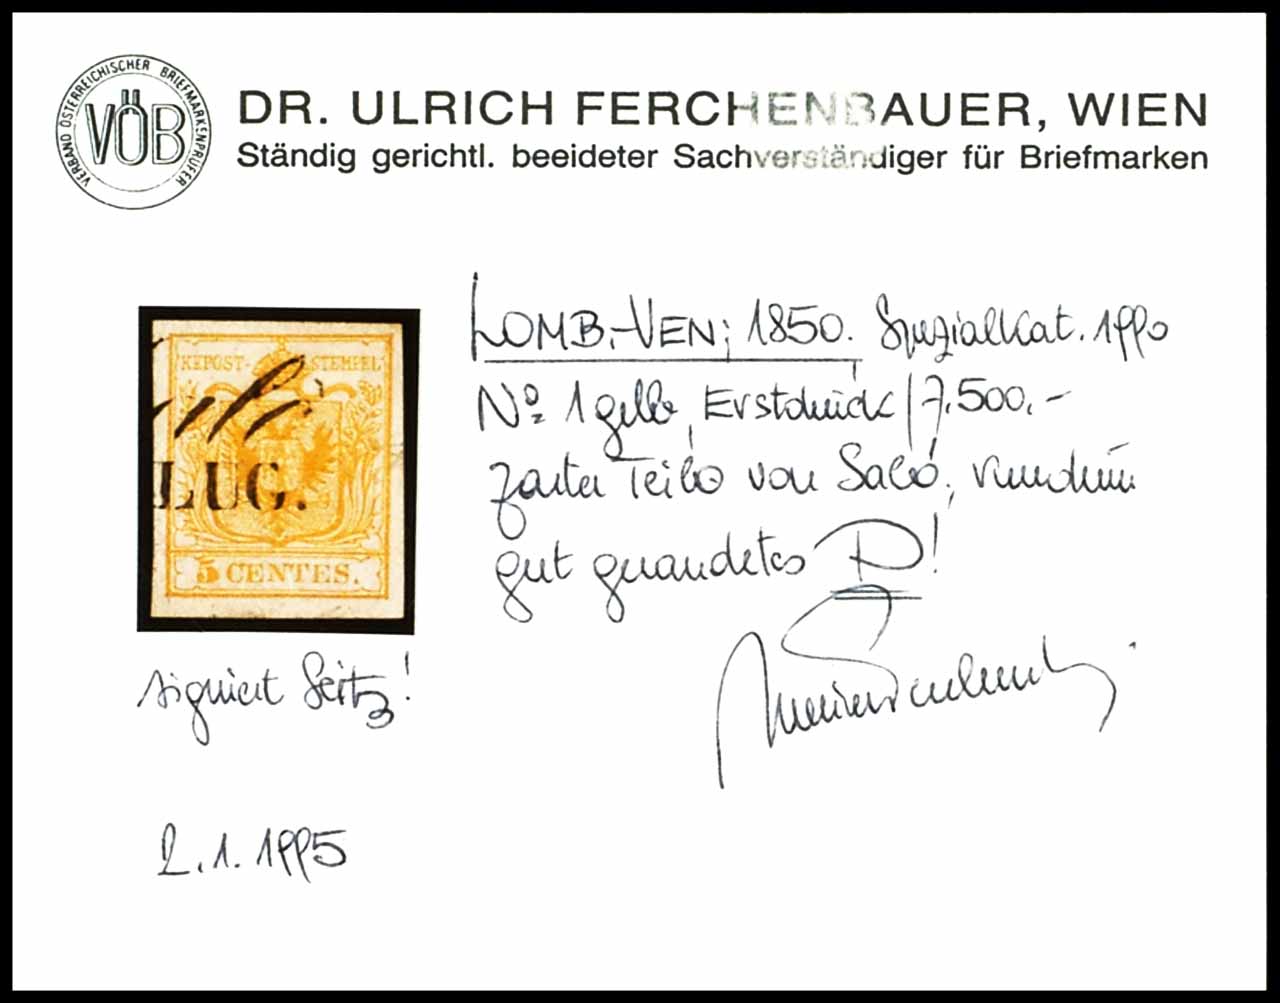 VERBAND ÖSTERREICHISCHER BRIEFMARKENPRÜFER
VÖB
DR. ULRICH FERCHENBAUER, WIEN
Ständig gerichtl. beeideter Sachverständiger für Briefmarken
LOMB.-VEN; 1850. Spezialkat. 1990
No 1 gelb, Erstdruck / 7.500,-
zarter Teilb von Salò, rundum
gut gerandetes P!
KKPOST-STEMPEL
LUG.
5 CENTES.
signiert Seitz!
2.1.1995